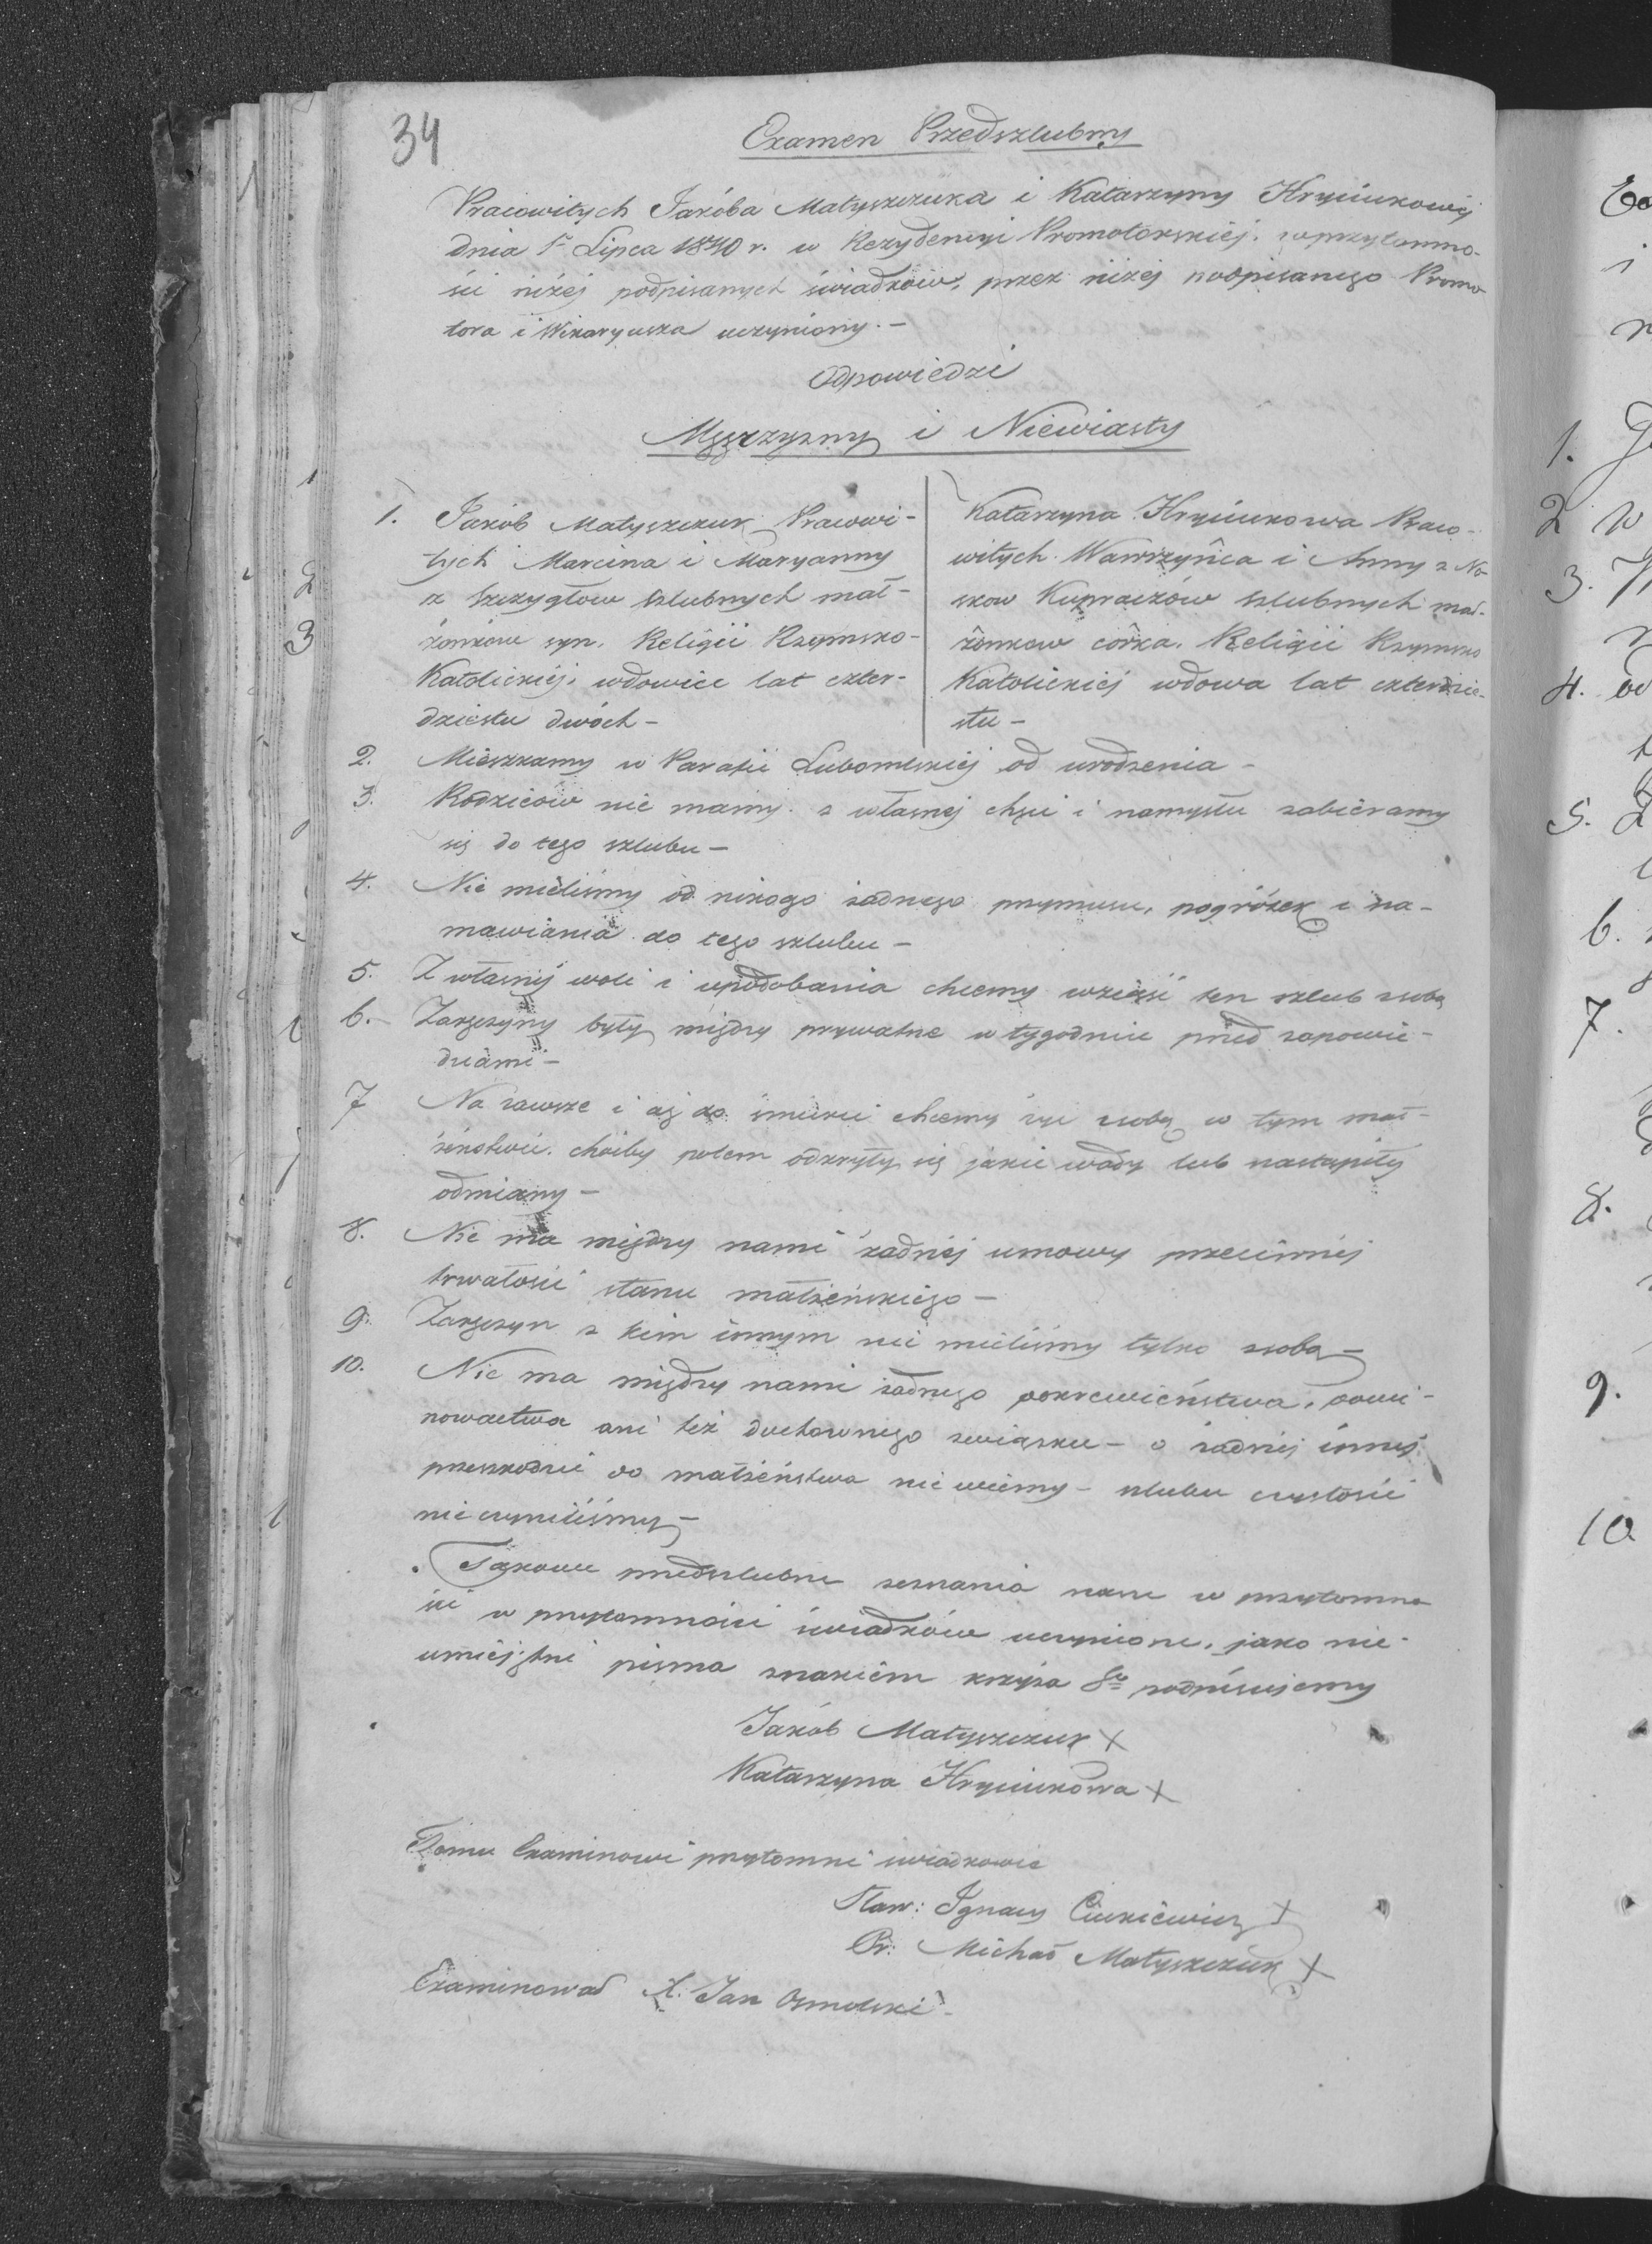 34
Examen Przedszlubny
Pracowitych Jakóba Matyszczuka i Katarzyny Hryciukowéj
dnia 1º Lipca 1840 r. w Rezydencyi Promotorskiéj. w przytomno-
ści niżéj podpisanych świadków, przez niżéj podpisanego Promo
tora i Wikaryusza uczyniony. -
Odpowiedzi
Męzczyzny i Niewiasty
1. Jakób Matyszczuk Pracowi-
tych Marcina i Maryanny
z Szczygłow szlubnych mał-
żonkow syn. Religii Rzymsko-
Katolickiéj, wdowiec lat czter-
dziestu dwóch -
Katarzyna Hryciukowa Praco-
witych Wawrzyńca i Anny z No-
skow Kupraczów szlubnych mał-
żonkow córka. Religii Rzymsko
Katolickiéj wdowa lat czterdzie-
stu -
2. Mieszkamy w Parafii Lubomlskiéj od urodzenia -
3. Rodziców nie mamy. z własnej chęci i namysłu zabieramy
się do tego szlubu -
4. Nie mieliśmy od nikogo żadnego przymusu, pogróżek i na-
mawiania do tego szlubu -
5. Z własnéj woli i upodobania chcemy wziąść ten szlub z sobą
6. Zaręczyny były między prywatne w tygodniu przed zapowie-
dziami -
7 Na zawsze i aż do śmierci chcemy żyć z sobą w tym mał-
żeństwie. choćby potem odkryły się jakie wady lub nastąpiły
odmiany -
8. Nie ma między nami żadnéj umowy przeciwnéj
trwałości stanu małżeńskiego -
9. Zaręczyn z kim innym nie mieliśmy tylko z sobą -
10. Nie ma między nami żadnego pokrewieństwa, powi-
nowactwa ani też duchownego związku - o żadnéj innéj
przeszkodzie do małżeństwa nie wiemy - szlubu czystości
nie czyniliśmy -
Takowe przedszlubne zeznania nasze w przytomno
ści w przytomności świadków uczynione, jako nie-
umiejętni pisma znakiem krzyża Sgo podpisujemy
Jakób Matyszczuk X
Katarzyna Hryciukowa X
Temu Examinowi przytomni świadkowie
Sław: Ignacy Ciukiewicz X
Pr: Michał Matyszczuk X
Examinował X. Jan Osmolski -
1
2
3
1.
2 w
3.
4. od
5. Z
6.
7.
8.
9.
10